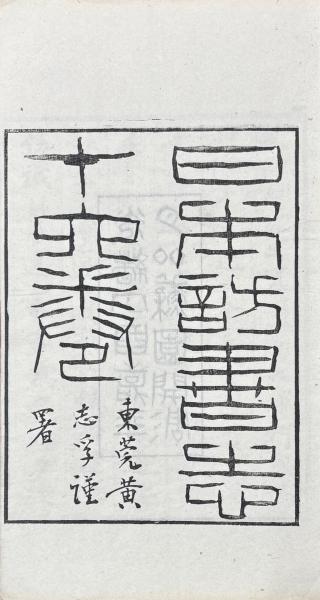 日本訪書志
十六卷
東莞黃
志孚謹
署